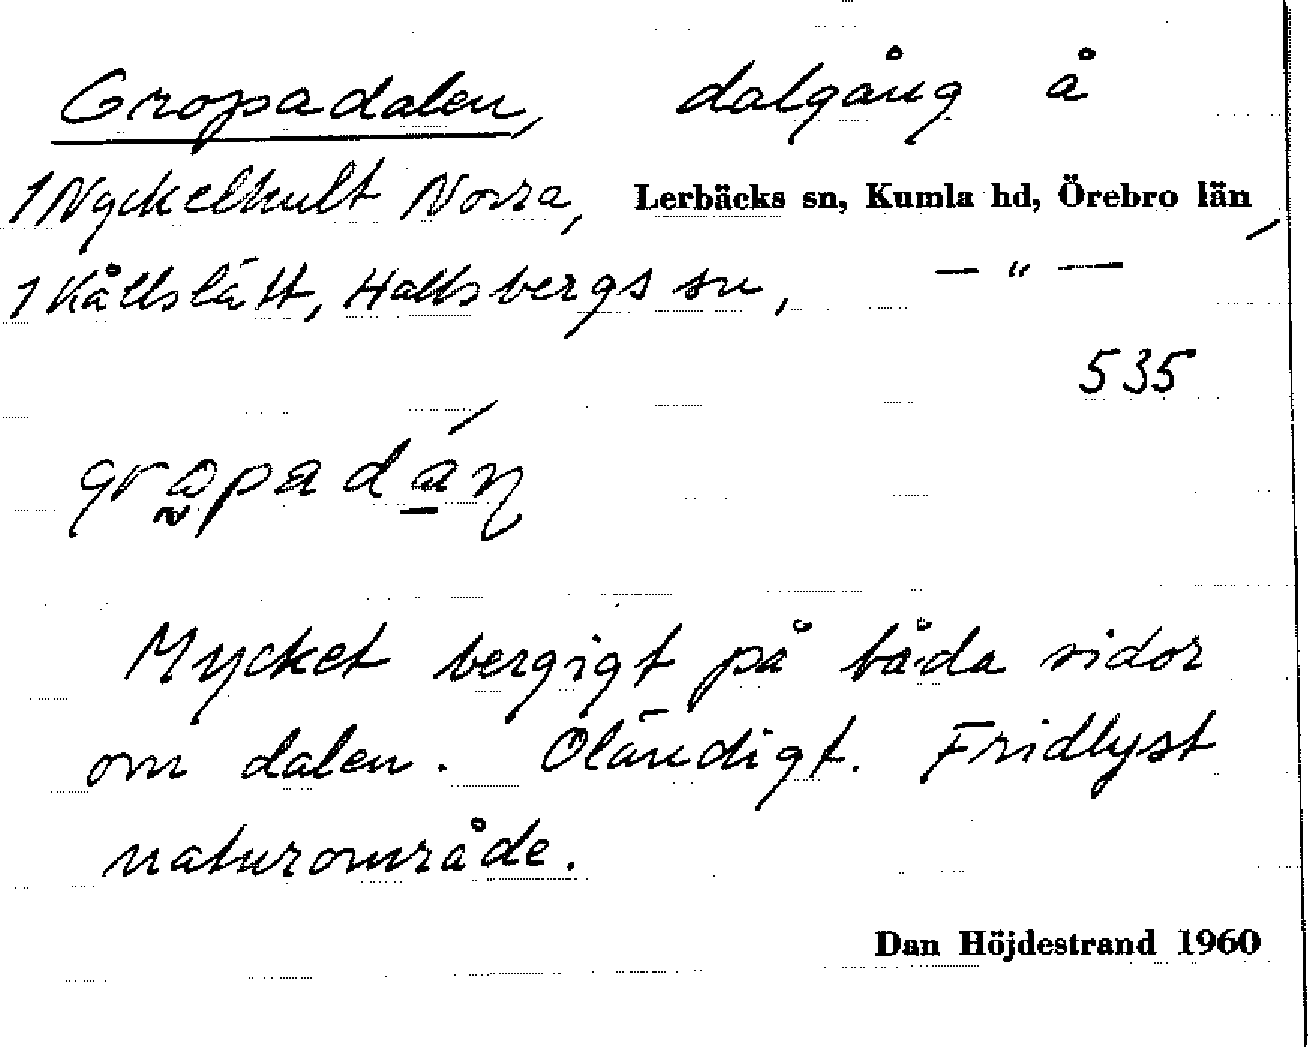 Gropadalen, dalgång å
1 Nyckelhult Norra, Lerbäcks sn, Kumla hd, Örebro län,
1 Kållslätt, Hallsbergs sn, — " —
535
Mycket bergigt på båda sidor
om dalen. Oländigt. Fridlyst
naturområde.
Dan Höjdestrand 1960